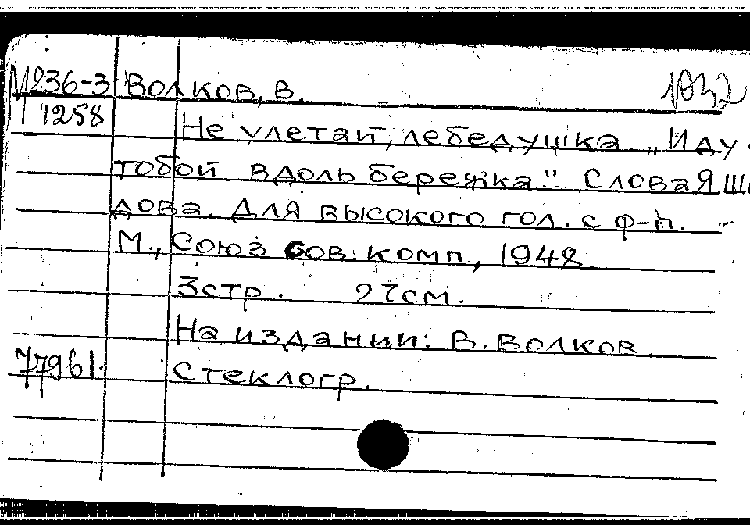 М236-3 Волков, В.
1258
Не улетай, лебедушка „Иду
тобой вдоль бережка." Слова Я Ш
дова. Для высокого гол. с ф-п.
М., Союз сов. комп, 1948
3стр. 27см.
На издании: В. Волков
Стеклогр.